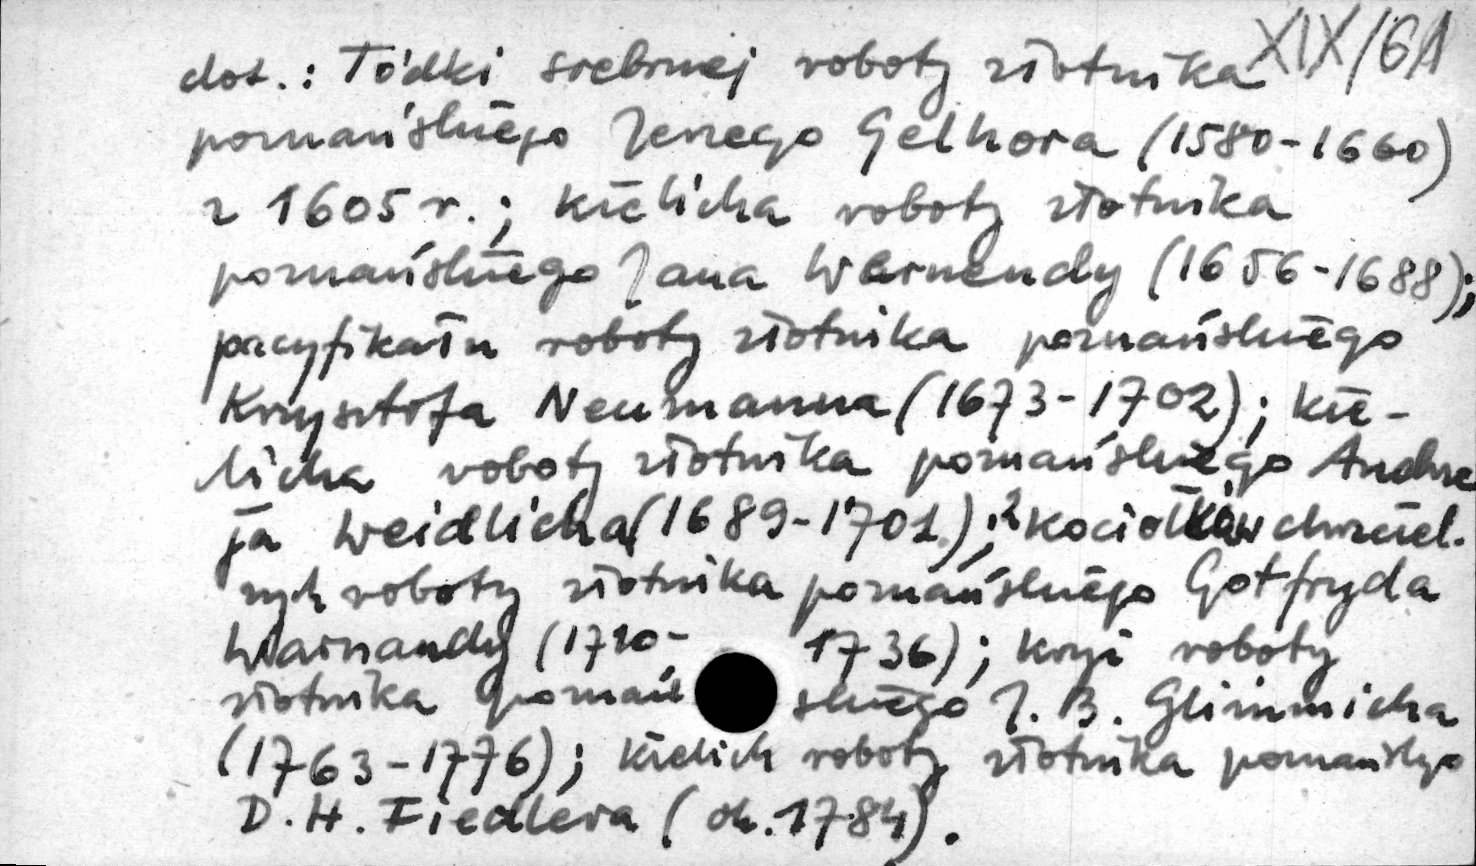 XIX/61
dot.: Tódki srebrnej roboty złotnika
poznańskiego Jerzego Gelhora (1580-1660)
z 1605 r.; kielicha roboty złotnika
poznańskiego Jana Wernendy (1656-1688);
pacyfikału roboty złotnika poznańskiego
Krzysztofa Neumanna (1673-1702); kie-
licha roboty złotnika poznańskiego Andrze
ja Weidlicha (1689-1701.); 2 kociołków chrzciel.
nych roboty złotnika poznańskiego Gotfryda
Warnandy (1710- 1736); krzyż roboty
złotnika poznań skiego J. B. Glimmicha
(1763-1776); kielich roboty złotnika poznańskiego
D. H. Fiedlera (ok. 1784).